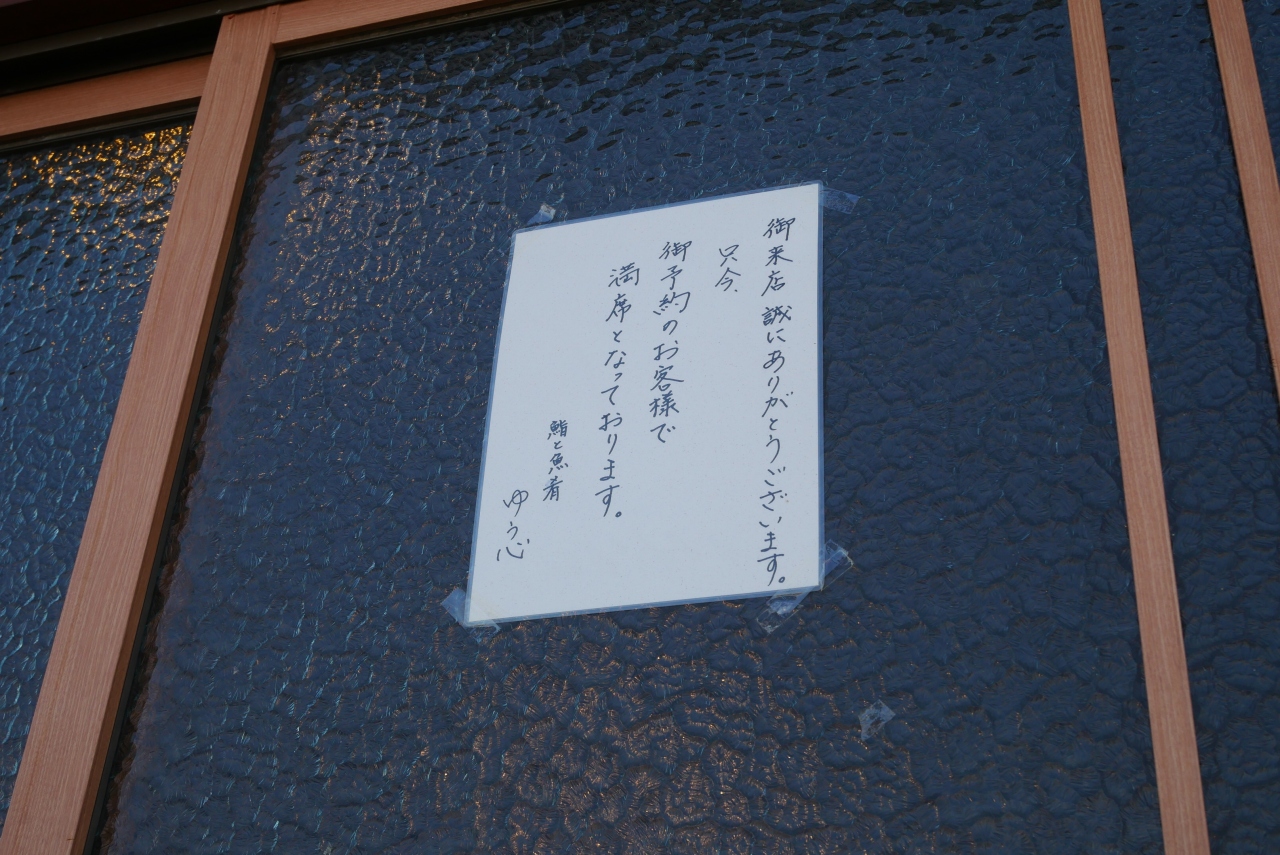 御来店 誠にありがとうございます。
只今、
御予約のお客様で
満席となっております。
鮨と魚肴
ゆう心